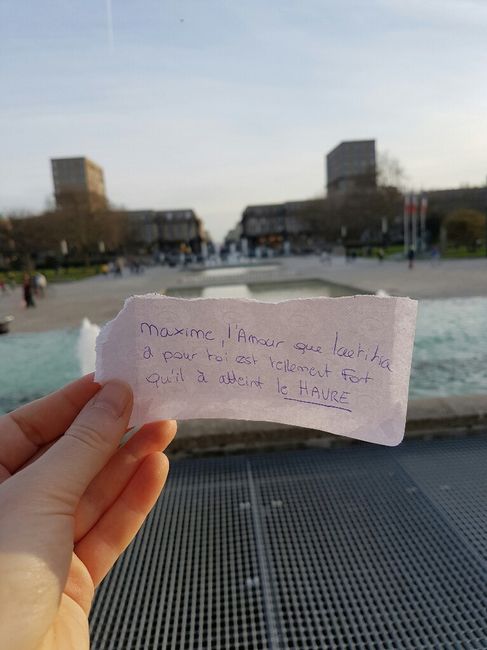 Maxime, l'Amour que laetitia
à pour toi est tellement fort
qu'il à atteint le HAVRE